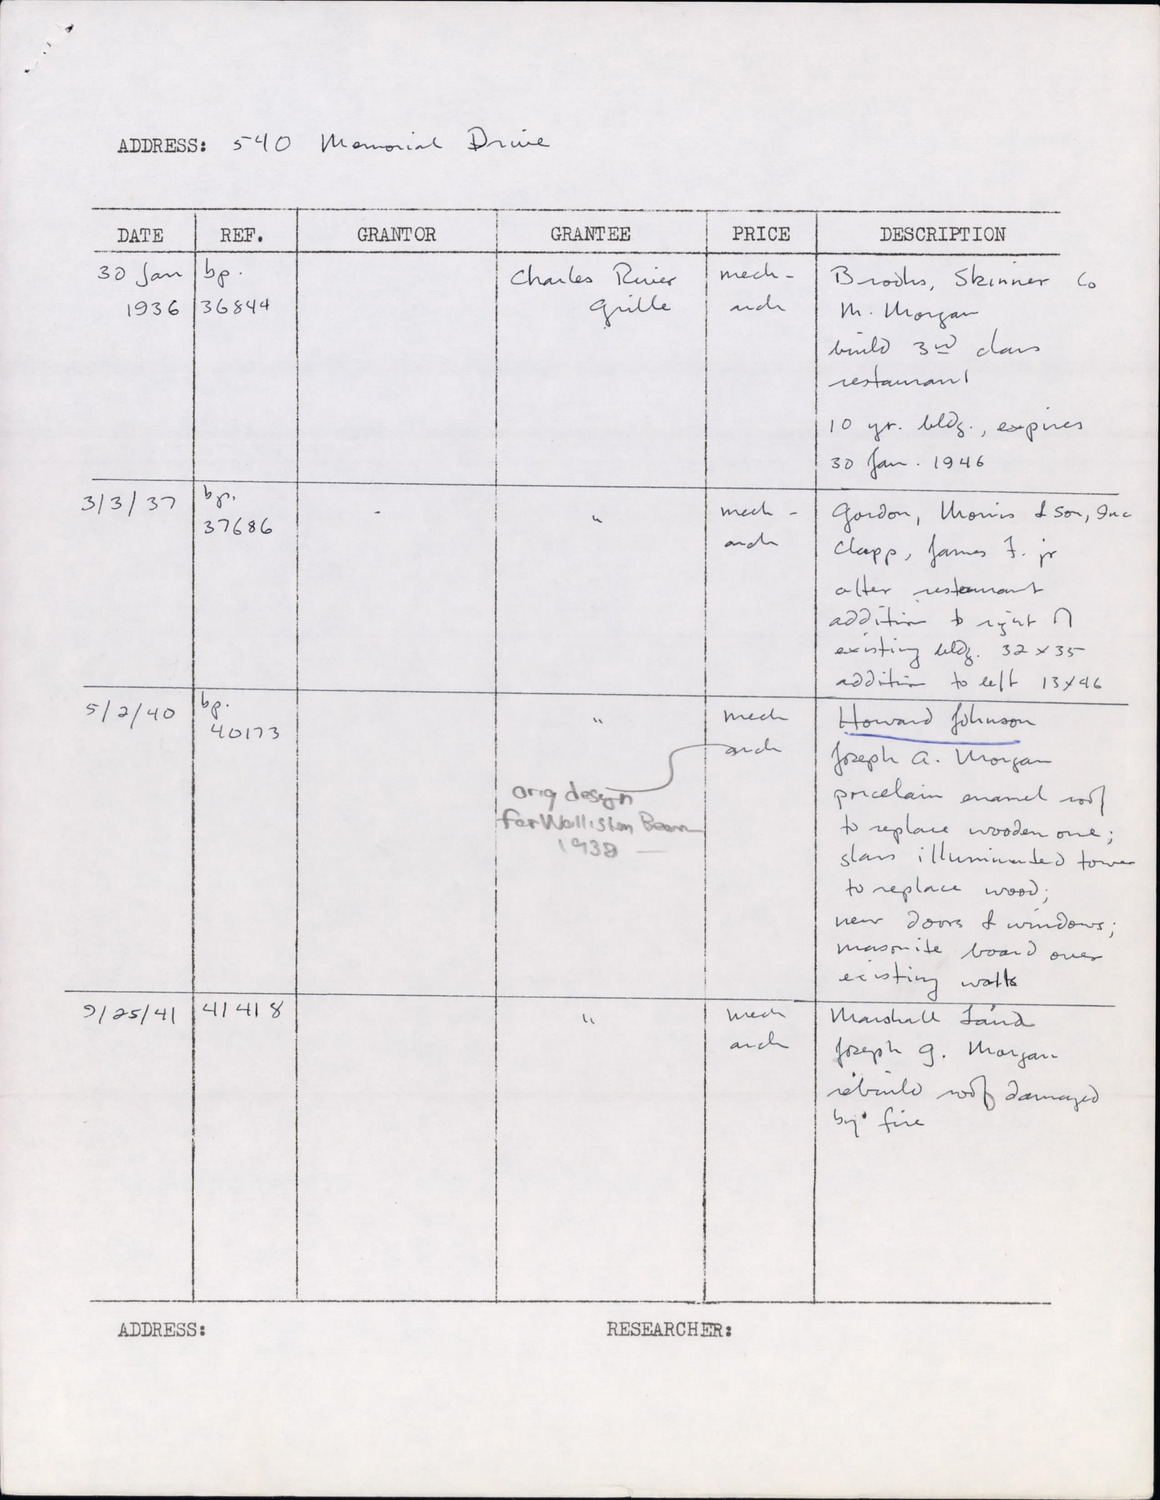 ADDRESS: 540 Memorial Drive
DATE REF. GRANTOR GRANTEE PRICE DESCRIPTION
30 Jan bp. Charles River mech- Brooks, Skinner Co
1936 36844 Grille arch M. Morgan
build 3rd class
restaurant
10 yr. bldg., expires
30 Jan. 1946
3/3/37 bp. " mech - Gordon, Morris & Son, Inc
37686 arch Clapp, James F. jr
alter restaurant
addition to right of
existing bldg. 32 x 35
addition to left 13x46
5/2/40 bp. " mech Howard Johnson
40173 arch Joseph A. Morgan
orig design porcelain enamel roof
for Wolliston Beach to replace wooden one;
1938 — glass illuminated tower
to replace wood;
new doors & windows;
masonite board over
existing walls
9/25/41 41418 " mech Marshall
arch Joseph G. Morgan
rebuild roof damaged
by fire
ADDRESS: RESEARCHER: